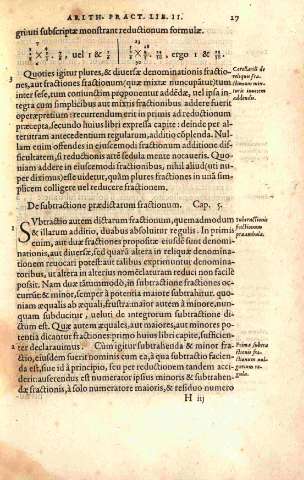 ARITH. PRACT. LIB. II. 27
griuti subscriptæ monstrant reductionum formulæ.
ergo 1 &
Quoties igitur plures, & diuersæ denominationis fractio-
nes, aut fractiones fractionum (quæ mixtæ nuncupātur) tum
inter sese, tum coniunctim proponuntur addēdæ, vel ipsa in-
tegra cum simplicibus aut mixtis fractionibus addere fuerit
operæpretium: recurrendum erit in primis ad reductionum
præcepta, secundo huius libri expressa capite: deinde per al-
terutram antecedentium regularum, additio cōplenda. Nul-
lam enim offendes in eiuscemodi fractionum additione dif-
ficultatem, si reductionis antè sedula mente notaueris. Quo-
niam addere in eiuscemodi fractionibus, nihil aliud (uti nu-
per diximus) esse uidetur, quàm plures fractiones in unā sim-
plicem colligere vel reducere fractionem.
Corollariū de
reliquæ fra-
ctionum mix-
turis inuicem
addendis.
De subtractione prædictarum fractionum. Cap. 5.
SVbtractio autem dictarum fractionum, quemadmodum
& illarum additio, duabus absoluitur regulis. In primis
enim, aut duæ fractiones propositæ eiusdē sunt denomi-
nationis, aut diuersæ, sed quarū altera in reliquæ denomina-
tionem reuocari potest: aut talibus exprimuntur denomina-
toribus, ut altera in alterius nomēclaturam reduci non facile
possit. Nam duæ tātummodò, in subtractione fractiones oc-
currūt: & minor, semper à potentia maiore subtrahitur. quo-
niam æqualis ab æquali, frustra: maior autem à minore, nun-
quam subducitur, ueluti de integrorum subtractione di-
ctum est. Quæ autem æquales, aut maiores, aut minores po-
tentia dicantur fractiones: primo huius libri capite, sufficien-
ter declarauimus.
Subtractionis
fractionum
præambula.
2 Cùm igitur subtrahenda & minor fra-
ctio, eiusdem fuerit nominis cum ea, à qua subtractio facien-
da est, siue id à principio, seu per reductionem tandem acci-
derit: auferendus est numerator ipsius minoris & subtrahen-
dæ fractionis, à solo numeratore maioris, & residuo numero
Prima subtra
ctionis fra-
ctionum uul-
garium re-
gula.
H iij